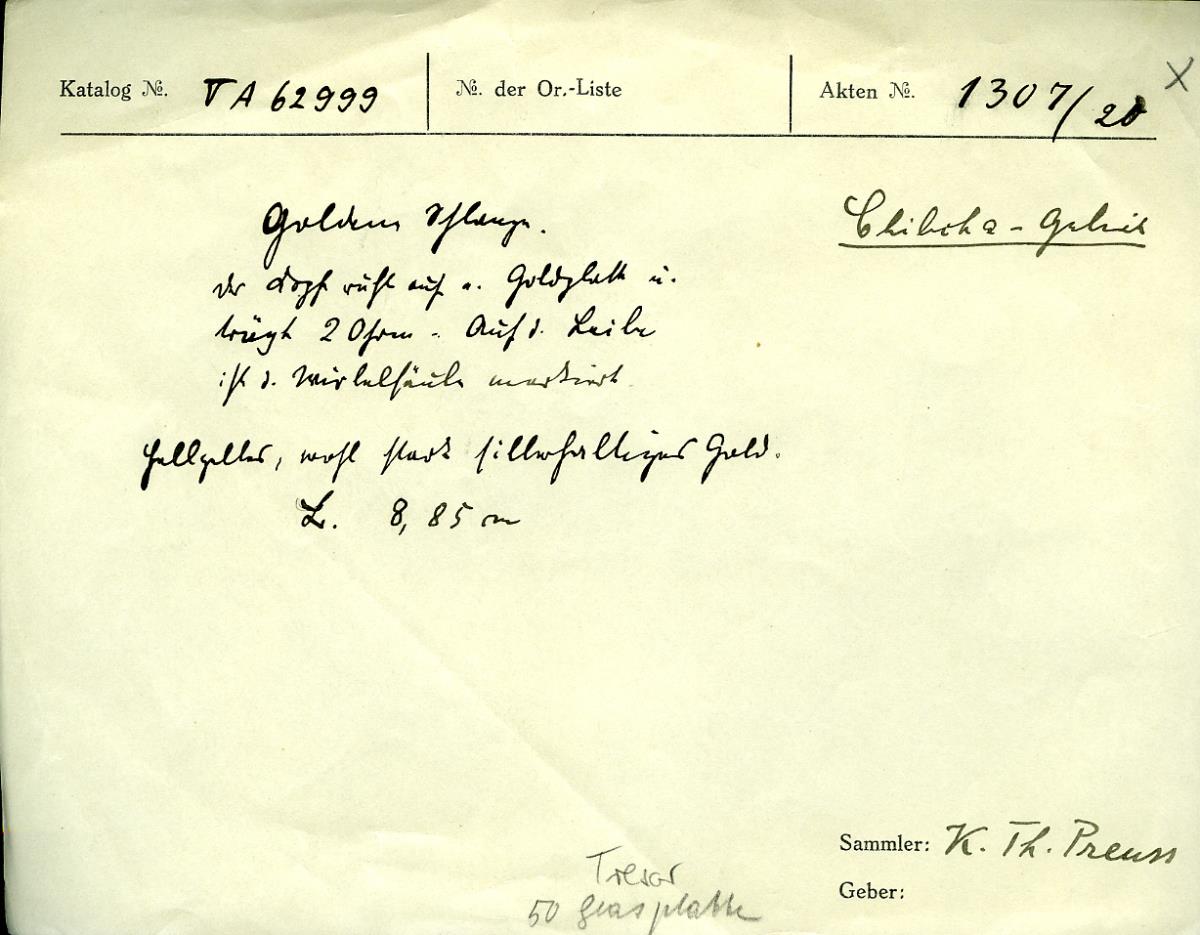 Katalog №. V A 62999
№. der Or.-Liste
Akten №. 1307/20
X
Goldene Schlange.
Chibcha-Gebiet
der Kopf ruht auf e. Goldplatte u.
trägt 2 Ohren. Auf d. Leibe
ist d. Wirbelsäule markiert.
hellgelbes, wohl stark silberhaltiges Gold.
L. 8,85 cm
Sammler: K. Th. Preuss
Geber:
Tresor
50 Glasplatte